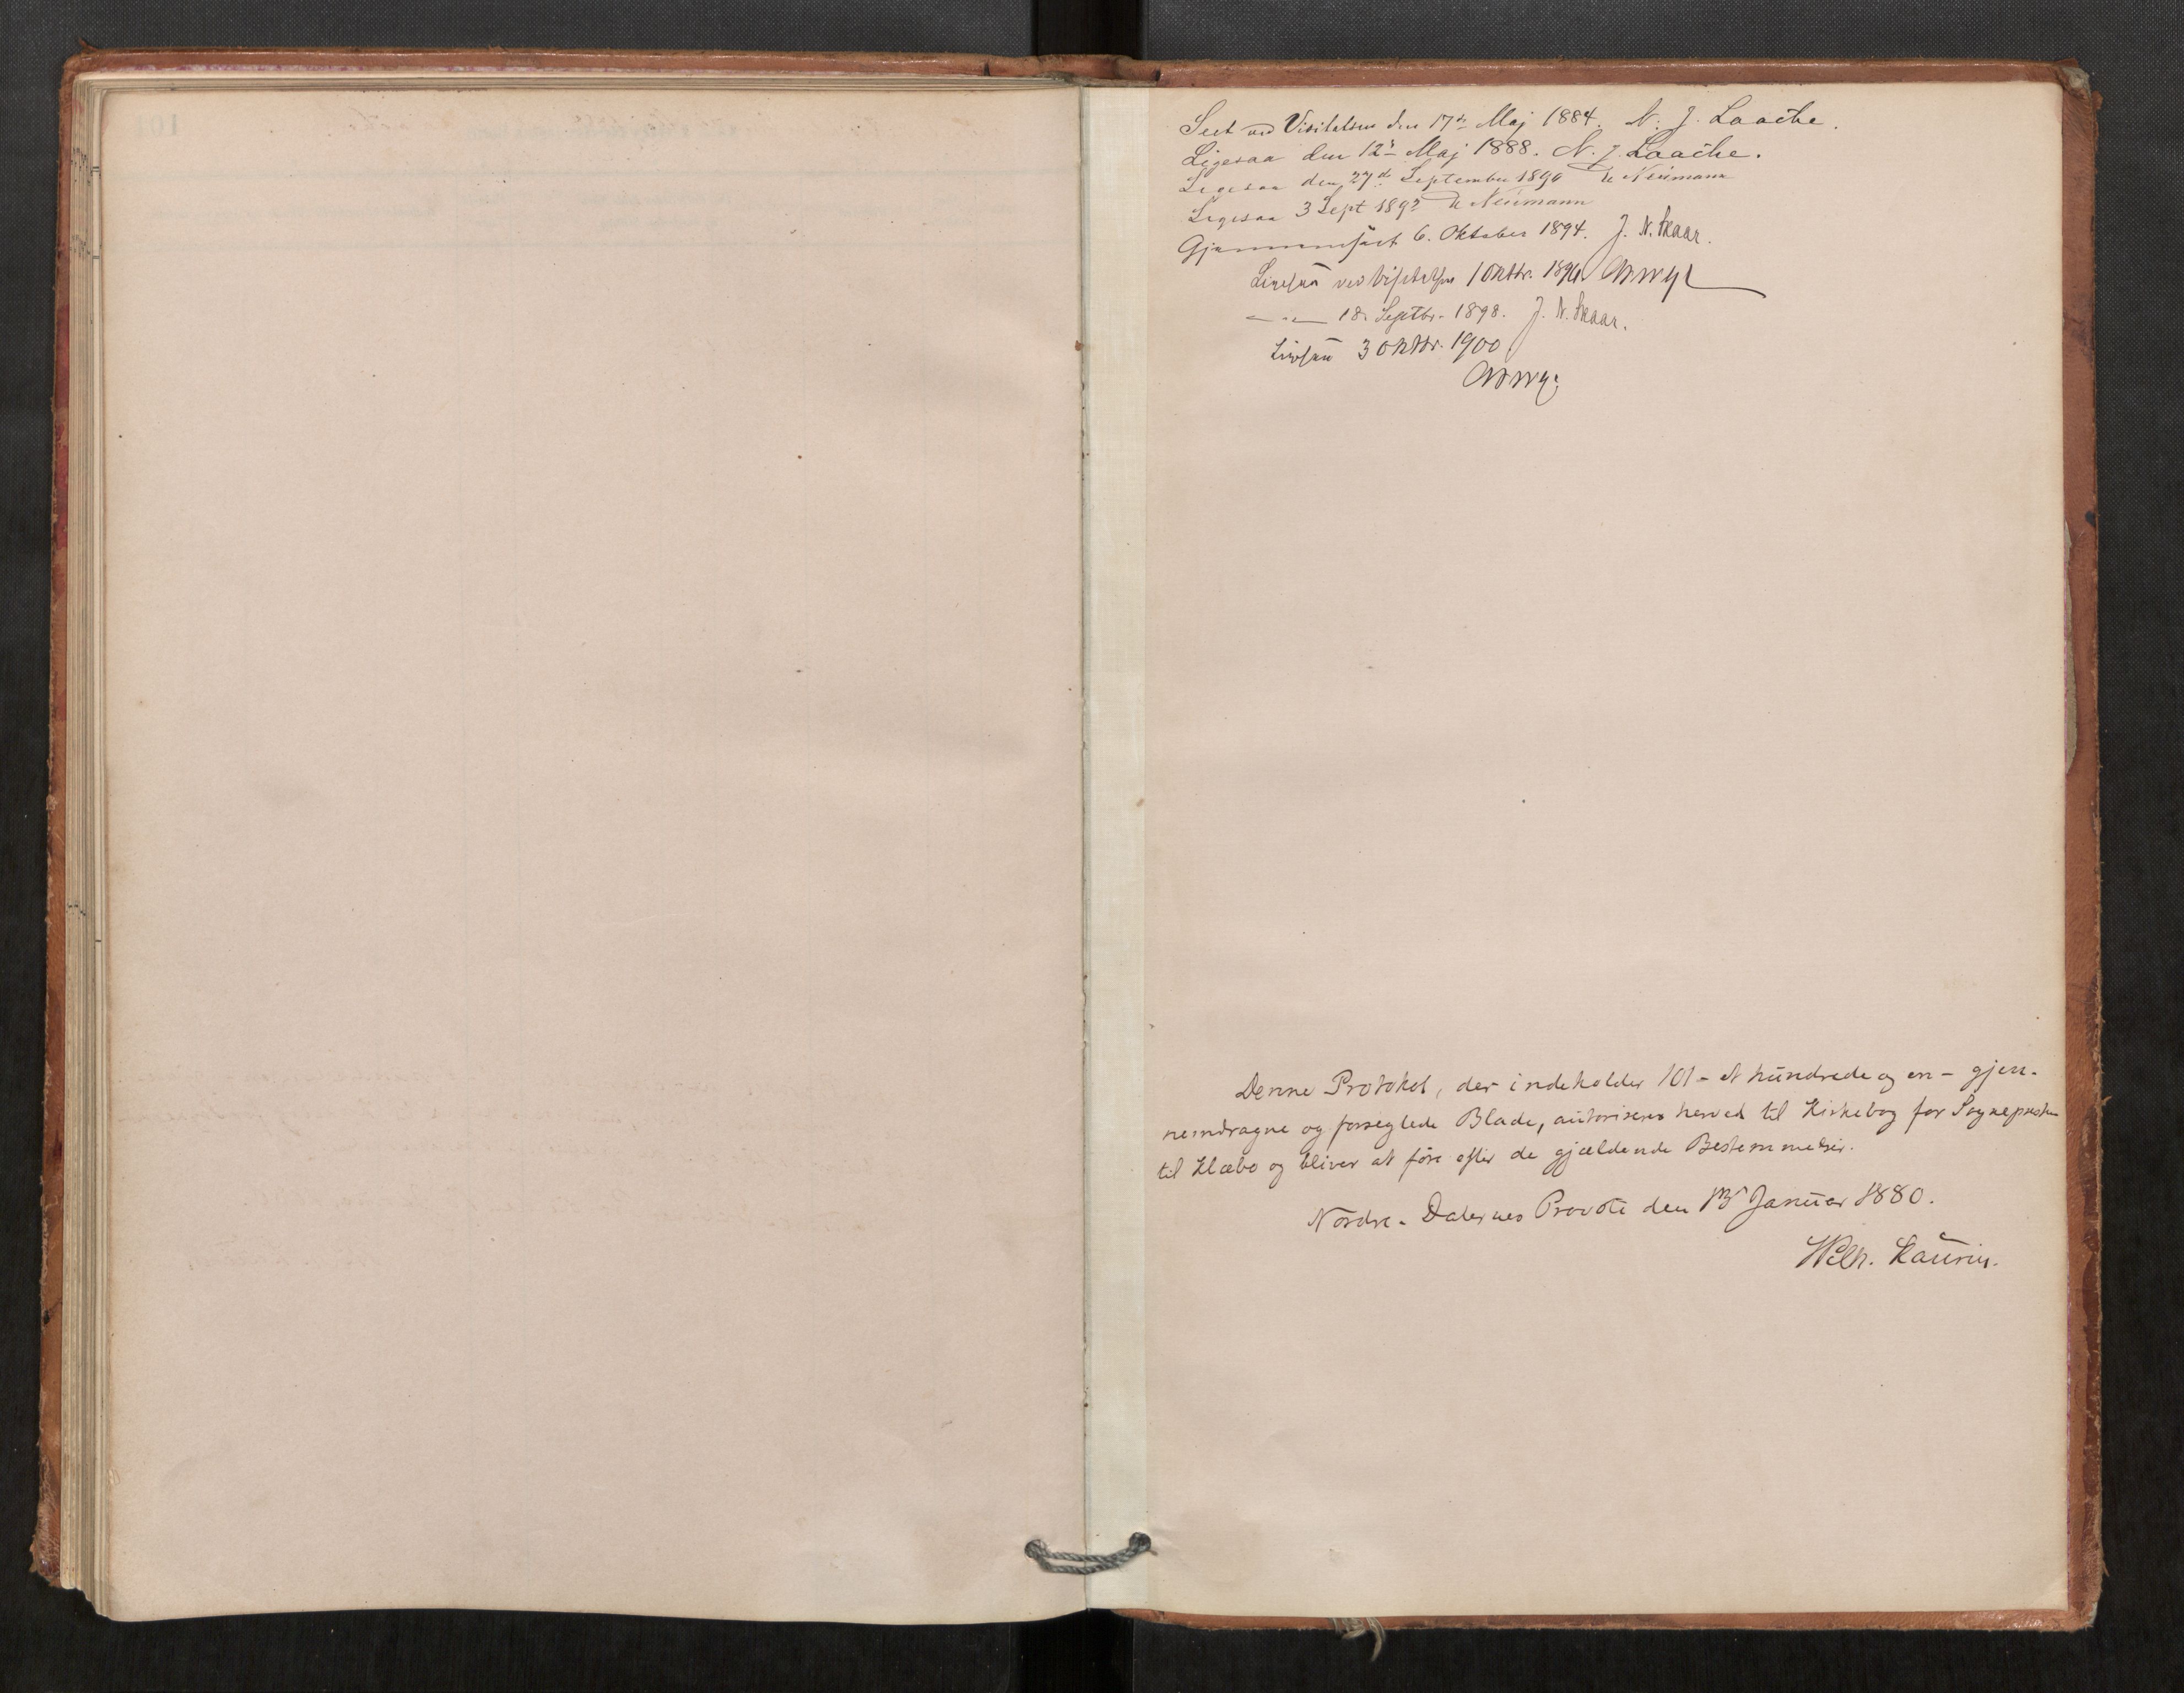 Seet ved Visitatsen den 17de Maj 1884. N. J. Laache.
Ligesaa den 12te Maj 1888. N. J. Laache.
Ligesaa den 27de September 1890 Neumann
Ligesaa 3 Sept 1892 Neumann
Gjennemseet 6. Oktober 1894. J. N. Skaar.
Ligesaa ved Visitatsen 1 Oktbr. 1896
— " — 18. Septbr. 1898. J. N. Skaar.
Ligesaa 3 Oktbr. 1900
Denne Protokol, der indeholder 101 - et hundrede og en - gjen-
nemdragne og forseglede Blade, autoriseres herved til Kirkebog for Sognepresten
til Klæbo og bliver at føre efter de gjældende Bestemmelser.
Nordre-Dalernes Provsti den Januar 1880.
Wilh. Laurin.